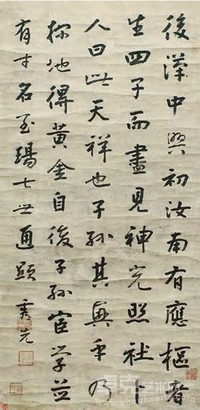 後漢中興初汝南有應樞者
生四子而盡見神光照社卜
人曰此天祥也子孫其興乎乃
探地得黃金自後子孫宦学並
有才名至瑒七世通顯 秀先